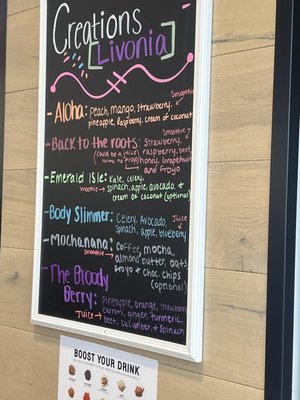 Creations
[Livonia]
Smoothie
- Aloha: Peach, mango, strawberry,
pineapple, raspberry, cream of coconut
Smoothie
- Back to the roots: Strawberry,
(could be a juice) raspberry, beet,
with no froyo honey, Grapefruit
and Froyo
- Emerald Isle: Kale, celery,
Smoothie spinach, apple, avocado, +
cream of coconut (optional)
- Body Slimmer: Celery, Avocado, Juice
Spinach, apple, blueberry
- Mochanana: Coffee, mocha,
Smoothie almond butter, oats
froyo + choc chips
(optional)
- The Bloody
Berry: Pineapple, orange, strawberry
carrots, ginger, turmeric,
Juice beet, cucumber, + spinach
BOOST YOUR DRINK